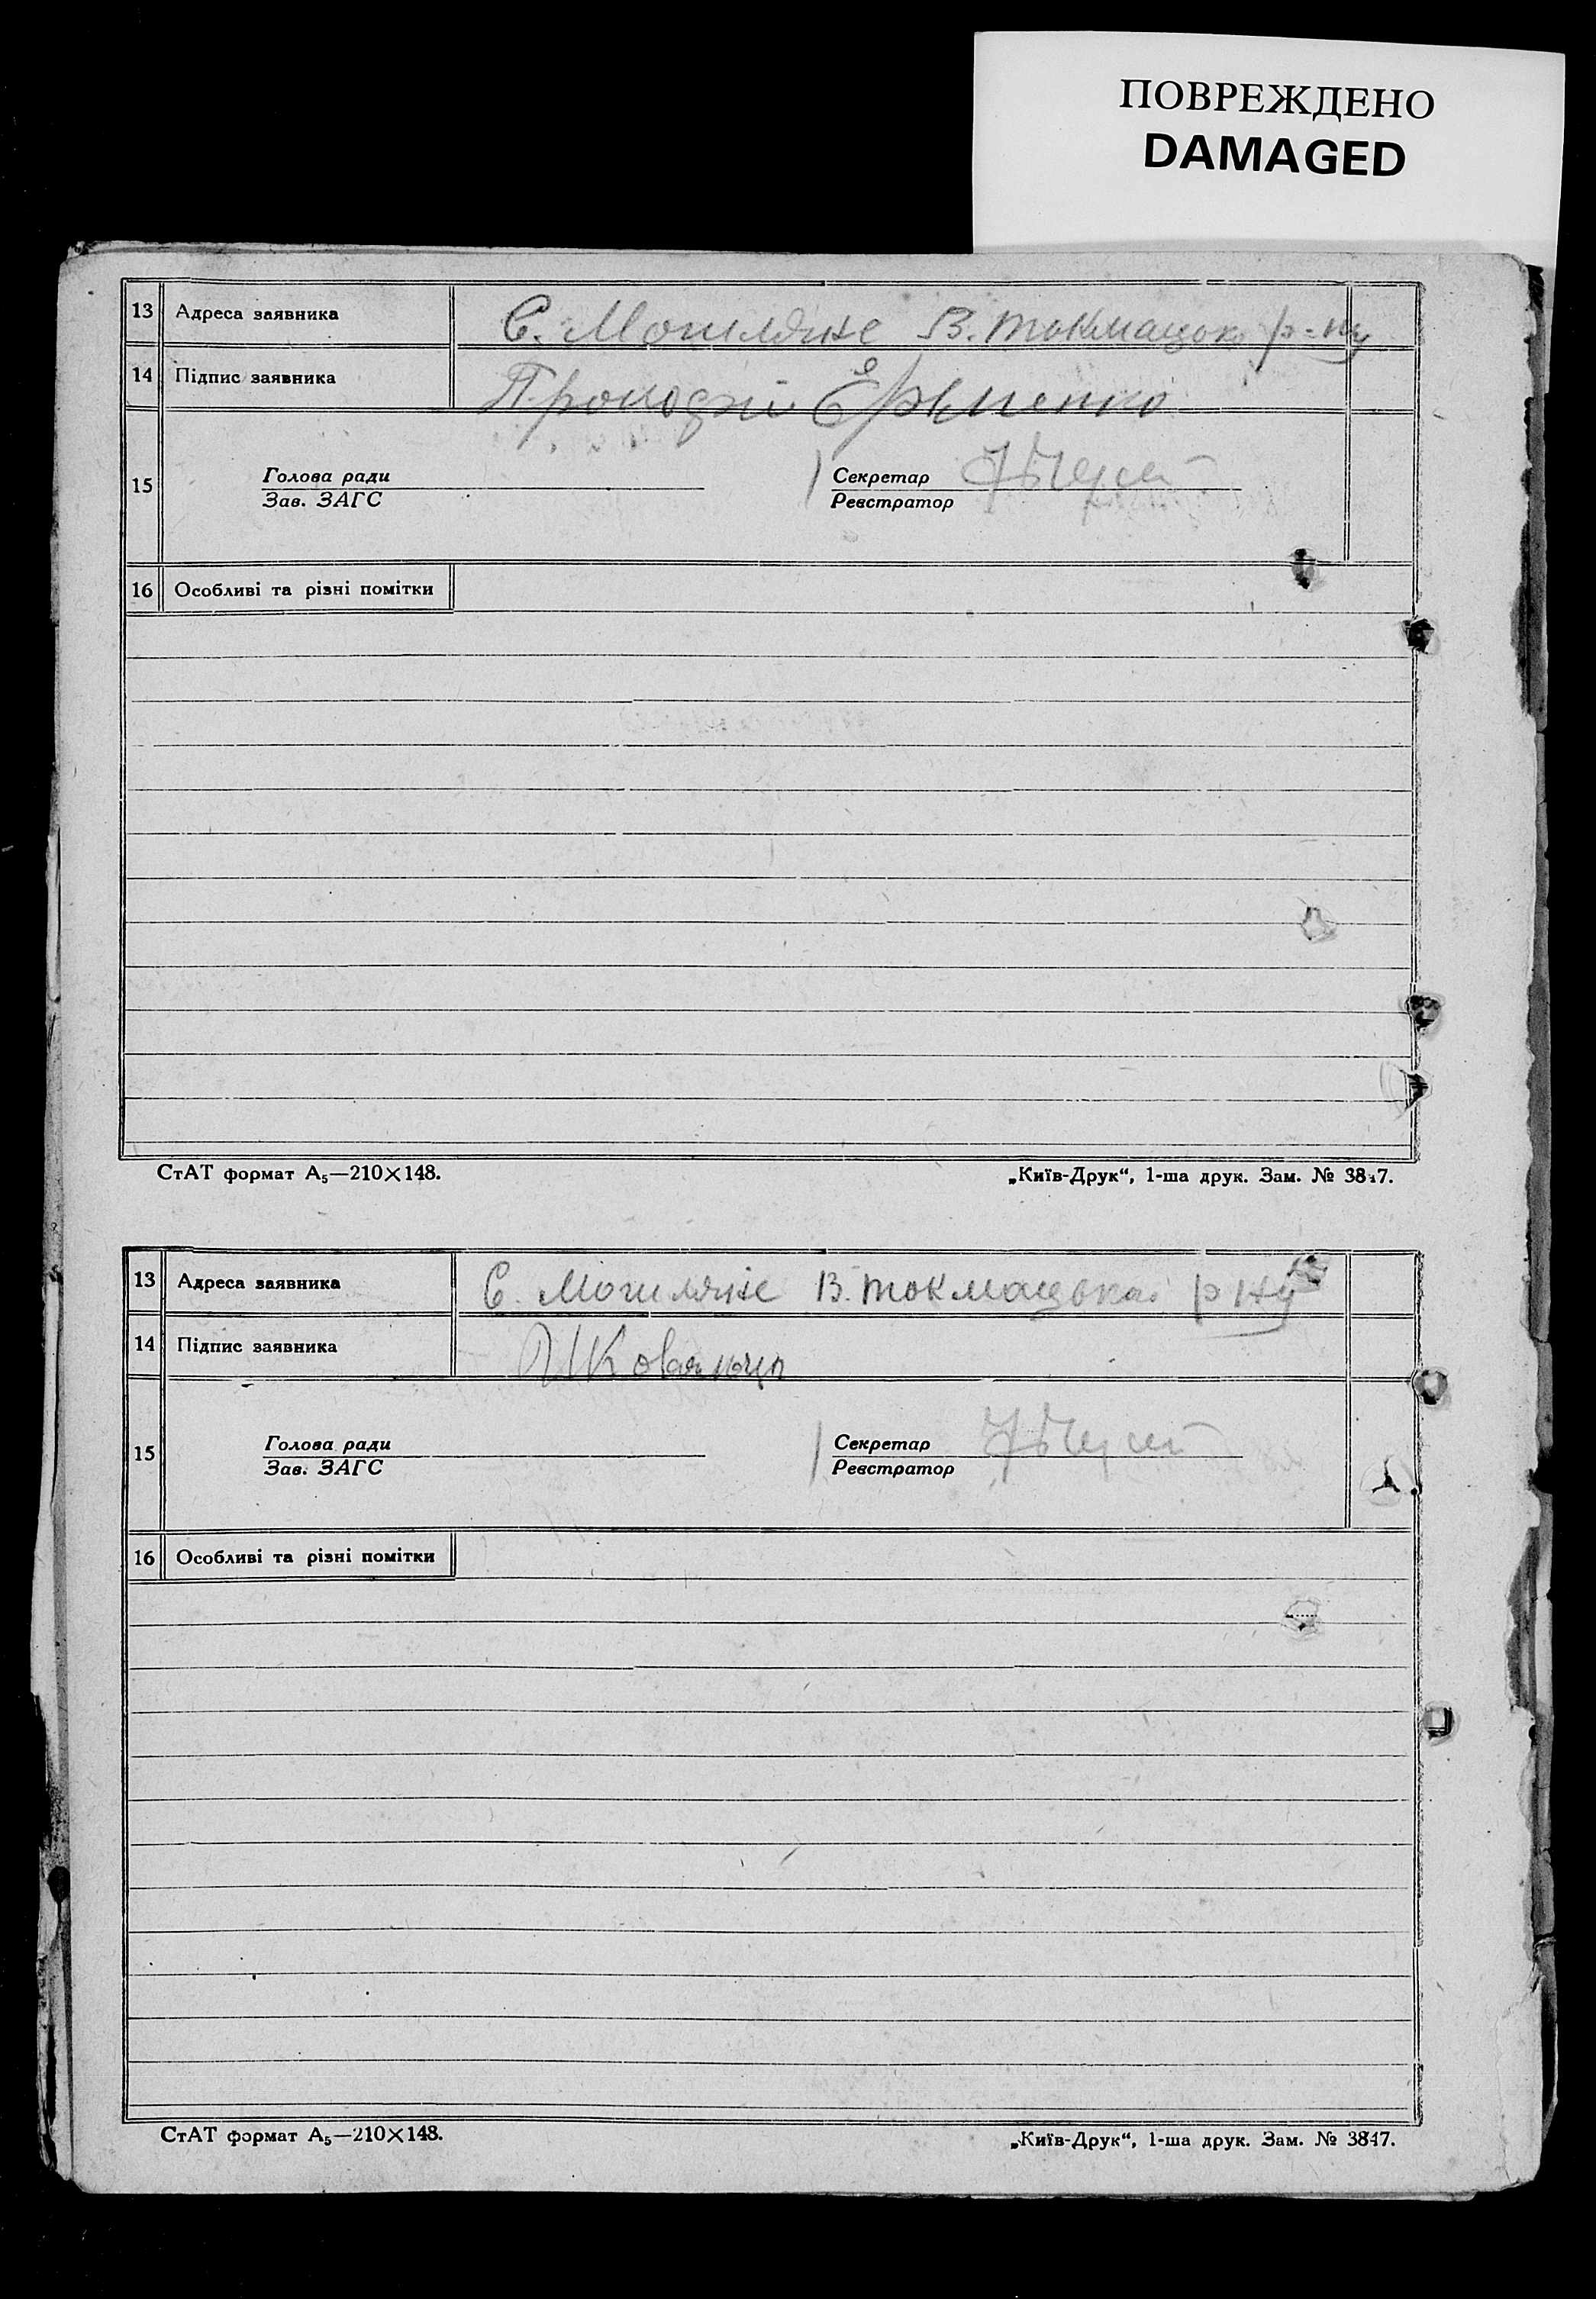 ПОВРЕЖДЕНО
DAMAGED
13 Адреса заявника С. Могиляне В. Токмацько р-ну
14 Підпис заявника Єрьменко
15 Голова ради Секретар
Зав. ЗАГС Реєстратор
16 Особливі та різні помітки
СтАТ формат А₅—210×148. „Київ-Друк“, 1-ша друк. Зам. № 3847.
13 Адреса заявника С. Могиляне В. Токмацька рну
14 Підпис заявника
15 Голова ради Секретар
Зав. ЗАГС Реєстратор
16 Особливі та різні помітки
СтАТ формат А₅—210×148. „Київ-Друк“, 1-ша друк. Зам. № 3847.